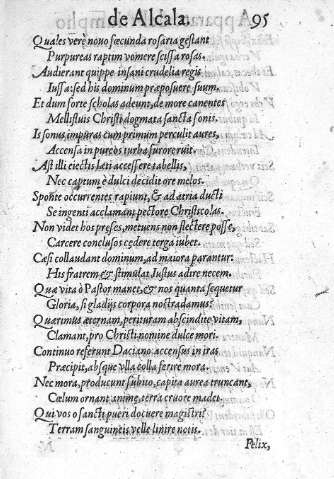 de Alcala. 95
Quales verè nouo fœcunda rosaria gestant
Purpureas raptim vomere scissa rosas.
Audierant quippe insani crudelia regis
Iussa: sed his dominum præposuere suum.
Et dum forte scholas adeunt, de more canentes
Mellifluis Christi dogmata sancta sonis.
Is sonus impuras cum primum perculit aures,
Accensa in pueros turba furore ruit.
Ast illi eiectis læti accessere tabellis,
Nec captum è dulci decidit ore melos.
Sponte occurrentes rapiunt, & ad atria ducti
Se ingenti acclamant pectore Christicolas.
Non videt hos preses, metuens non flectere posse,
Carcere conclusos cedere terga iubet.
Cæsi collaudant dominum, ad maiora parantur:
His fratrem & stimulat Iustus adire necem.
Quæ vita ò Pastor manet, & nos quanta sequetur
Gloria, si gladijs corpora nostra damus?
Quærimus æternam, perituram abscindite vitam,
Clamant, pro Christi nomine dulce mori.
Continuo referunt Daciano accensus in iras
Præcipit, absque vlla colla ferire mora.
Nec mora, producunt subito, capita aurea truncant,
Cœlum ornant animæ, terra cruore madet.
Qui vos o sancti pueri docuere magistri?
Terram sanguineis velle linire notis.
Felix,